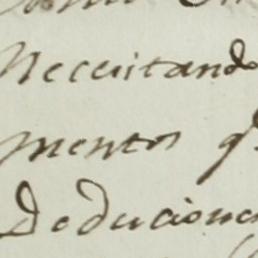 Necesitando
mentos q.
Deducione